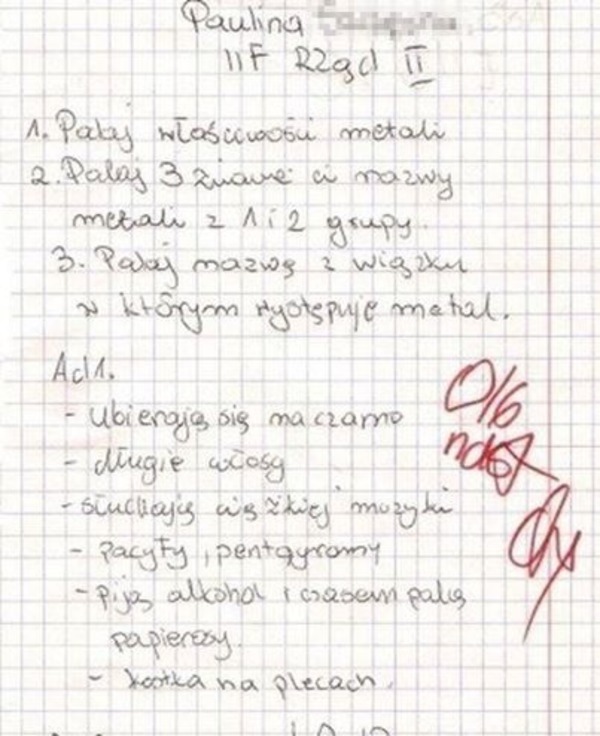 Paulina
IIF Rząd II
1. Podaj właściwości metali
2. Podaj 3 znane ci nazwy
metali z 1 i 2 grupy.
3. Podaj nazwę związku
w którym występuje metal.
Ad1.
- Ubierają się na czarno
- długie włosy
- słuchają ciężkiej muzyki
- pacyfy, pentagramy
- piją alkohol i czasem palą
papierosy.
- kostka na plecach.
0/6
ndst